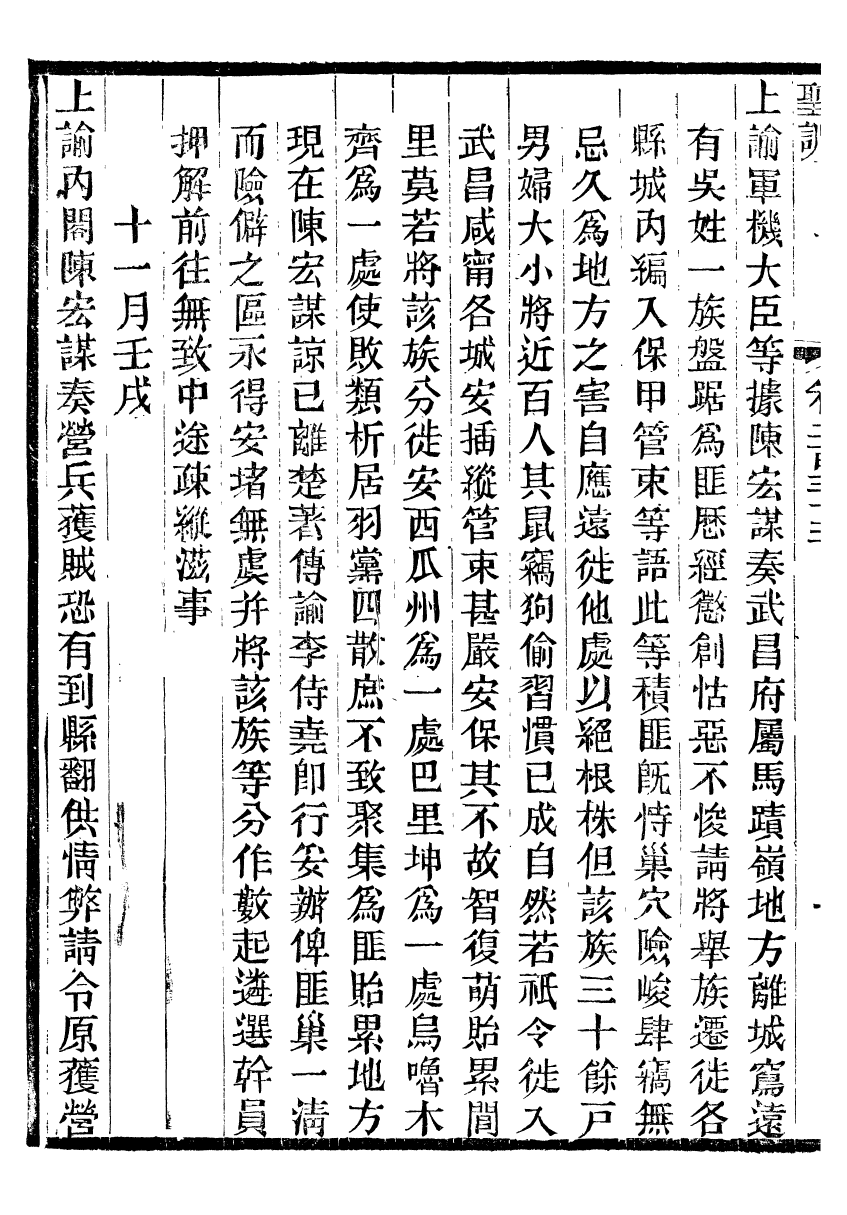 聖訓
上諭軍機大臣等據陳宏謀奏武昌府屬馬蹟嶺地方離城窵遠
有吳姓一族盤踞爲匪歷經懲創怙惡不悛請將舉族遷徙各
縣城內編入保甲管束等語此等積匪旣恃巢穴險峻肆竊無
忌久爲地方之害自應遠徙他處以絕根株但該族三十餘戸
男婦大小將近百人其鼠竊狗偷習慣已成自然若祇令徙入
武昌咸甯各城安插縱管束甚嚴安保其不故智復萌貽累閭
里莫若將該族分徙安西瓜州爲一處巴里坤爲一處烏嚕木
齊爲一處使敗類析居羽黨四散庶不致聚集爲匪貽累地方
現在陳宏謀諒已離楚著傳諭李侍堯卽行妥辦俾匪巢一淸
而險僻之區永得安堵無虞并將該族等分作數起遴選幹員
押解前往無致中途疎縱滋事
十一月壬戌
上諭內閣陳宏謀奏營兵獲賊恐有到縣翻供情弊請令原獲營